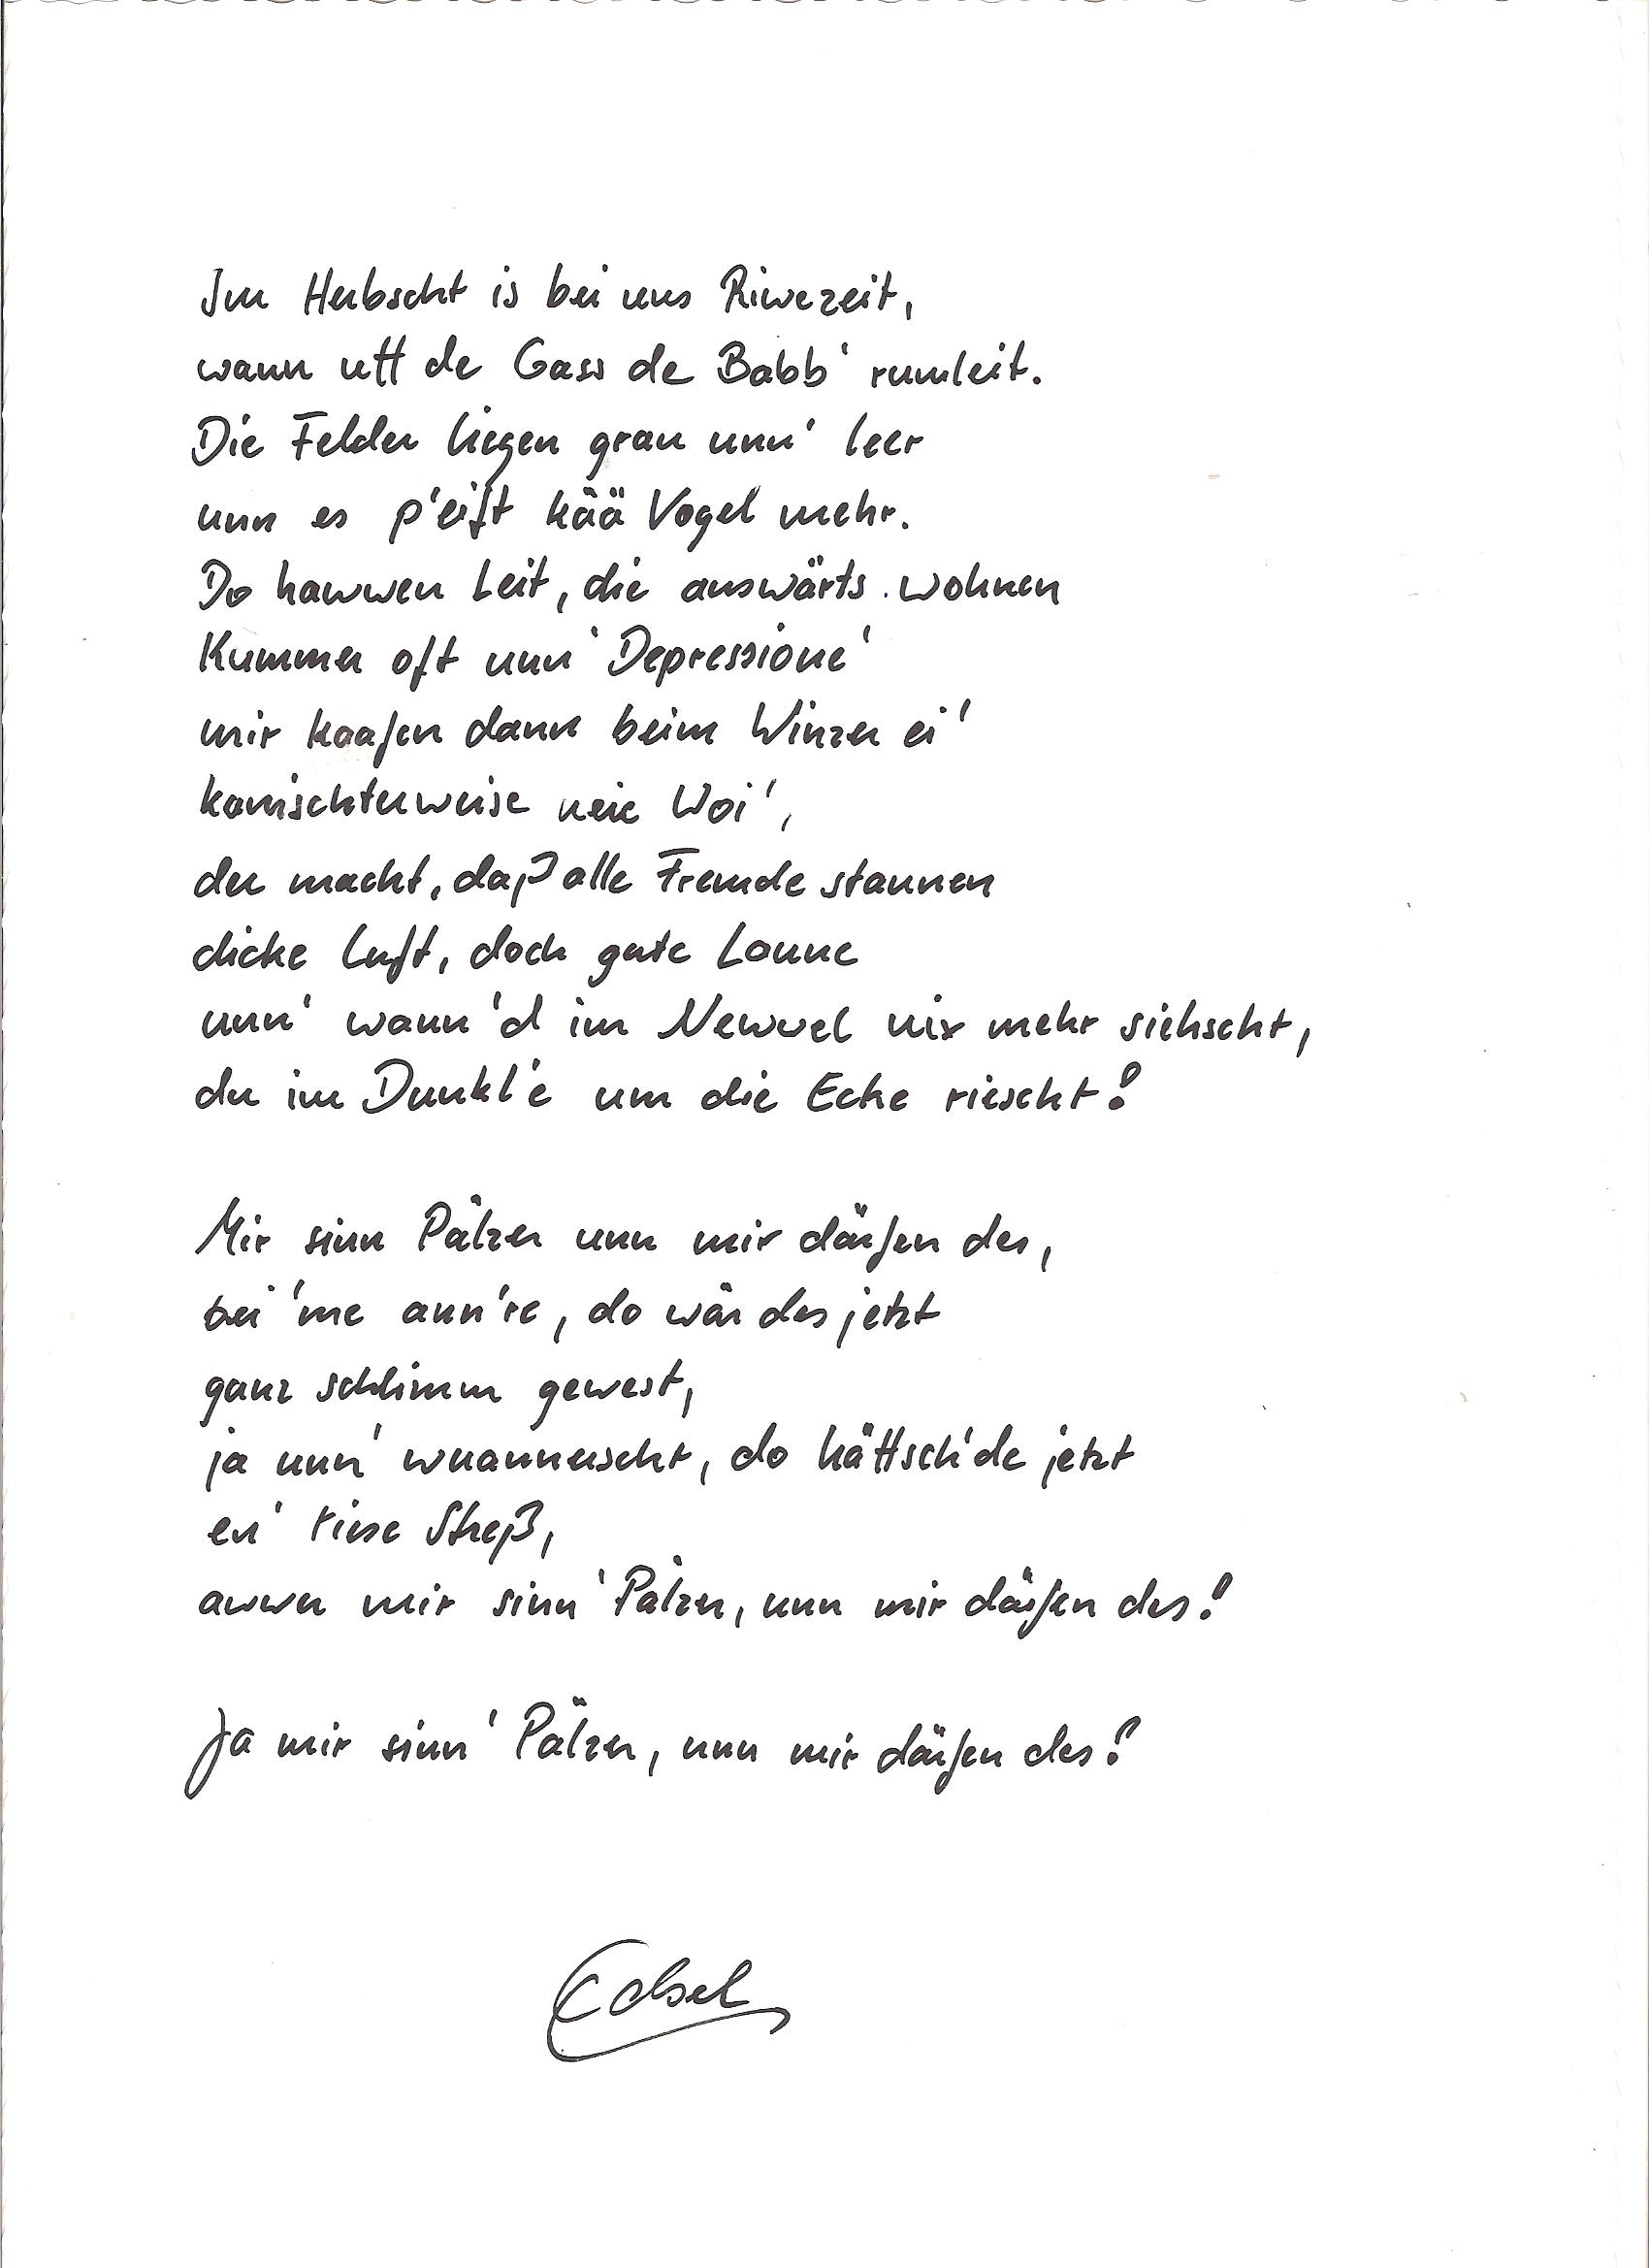 Im Herbscht is bei uns Riwezeit,
wann uff de Gass de Babb' rumleit.
Die Felder liegen grau unn' leer
unn es p'eift kää Vogel mehr.
Do hawwen Leit, die auswärts wohnen
Kummer oft unn' Depressione'
mir kaafen dann beim Winzer ei'
kanischterweise neie Woi',
der macht, daß alle Fremde staunen
dicke Luft, doch gute Laune
unn' wann'd im Newwel nix mehr siehscht,
der im Dunkl'e um die Ecke riescht!
Mir sinn Pälzer unn mir därfen des,
bei 'me ann're, do wär des jetzt
ganz schlimm gewest,
ja unn' wuannerscht, do hättsch'de jetzt
en' riese Streß,
awwer mir sinn' Pälzer, unn mir därfen des!
Ja mir sinn' Pälzer, unn mir därfen des!
Edsel